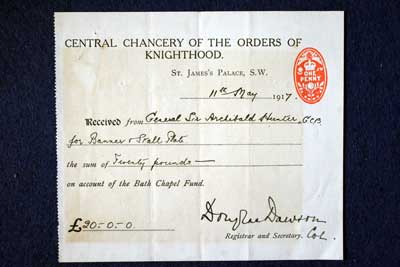 CENTRAL CHANCERY OF THE ORDERS OF
KNIGHTHOOD.
ST. JAMES'S PALACE, S.W.
11th May 1917.
ONE
PENNY
Received from General Sir Archibald Hunter, GCB
for Banner & Stall Plate
the sum of Twenty pounds —
on account of the Bath Chapel Fund.
£20-0-0
Douglas Dawson
Registrar and Secretary. Col.